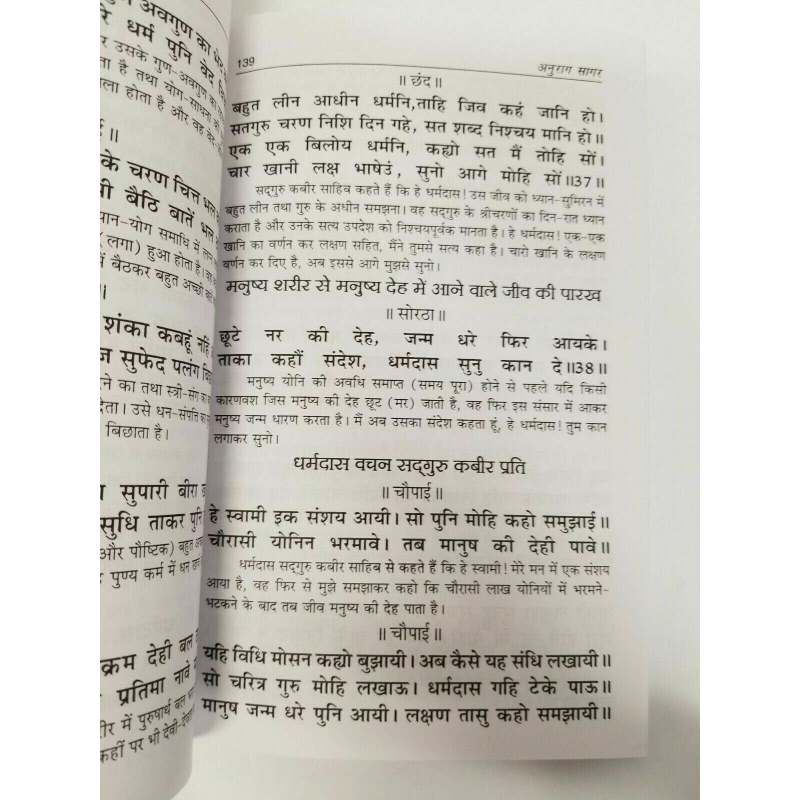 अवगुण का
रे धर्म पुनि वेद
उसके गुण-अवगुण का
ता है तथा योग-साधना
ला होता है और वह वेद
के चरण चित्त भल
बैठि बातें भल
ध्यान-योग समाधि में
(लगा) हुआ होता है।
में बैठकर बहुत अच्छी
शंका कबहूं नहिं
सुफेद पलंग
का तथा स्त्री-संग
देता। उसे धन-संपत्ति का
बिछाता है।
सुपारी बीरा
सुधि ताकर पुनि
और पौष्टिक) बहुत
पुण्य कर्म में धन
क्रम देही बल
प्रतिमा नावे
में पुरुषार्थ बल
कहीं पर भी देवी-
139 अनुराग सागर
॥ छंद॥
बहुत लीन आधीन धर्मनि,ताहि जिव कहं जानि हो।
सतगुरु चरण निशि दिन गहे, सत शब्द निश्चय मानि हो॥
एक एक बिलोय धर्मनि, कह्यो सत मैं तोहि सों।
चार खानी लक्ष भाषेउं, सुनो आगे मोहि सों॥37॥
सद्गुरु कबीर साहिब कहते हैं कि हे धर्मदास! उस जीव को ध्यान-सुमिरन में
बहुत लीन तथा गुरु के अधीन समझना। वह सद्गुरु के श्रीचरणों का दिन-रात ध्यान
कराता है और उनके सत्य उपदेश को निश्चयपूर्वक मानता है। हे धर्मदास! एक-एक
खानि का वर्णन कर लक्षण सहित, मैंने तुमसे सत्य कहा है। चारो खानि के लक्षण
वर्णन कर दिए है, अब इससे आगे मुझसे सुनो।
मनुष्य शरीर से मनुष्य देह में आने वाले जीव की पारख
॥ सोरठा॥
छूटे नर की देह, जन्म धरे फिर आयके।
ताका कहौं संदेश, धर्मदास सुनु कान दे॥38॥
मनुष्य योनि की अवधि समाप्त (समय पूरा) होने से पहले यदि किसी
कारणवश जिस मनुष्य की देह छूट (मर) जाती है, वह फिर इस संसार में आकर
मनुष्य जन्म धारण करता है। मैं अब उसका संदेश कहता हूं, हे धर्मदास! तुम कान
लगाकर सुनो।
धर्मदास वचन सद्गुरु कबीर प्रति
॥ चौपाई॥
हे स्वामी इक संशय आयी। सो पुनि मोहि कहो समुझाई॥
चौरासी योनिन भरमावे। तब मानुष की देही पावे॥
धर्मदास सद्गुरु कबीर साहिब से कहते हैं कि हे स्वामी! मेरे मन में एक संशय
आया है, वह फिर से मुझे समझाकर कहो कि चौरासी लाख योनियों में भरमने-
भटकने के बाद तब जीव मनुष्य की देह पाता है।
॥ चौपाई॥
यहि विधि मोसन कह्यो बुझायी। अब कैसे यह संधि लखायी॥
सो चरित्र गुरु मोहि लखाऊ। धर्मदास गहि टेके पाऊ॥
मानुष जन्म धरे पुनि आयी। लक्षण तासु कहो समझायी॥